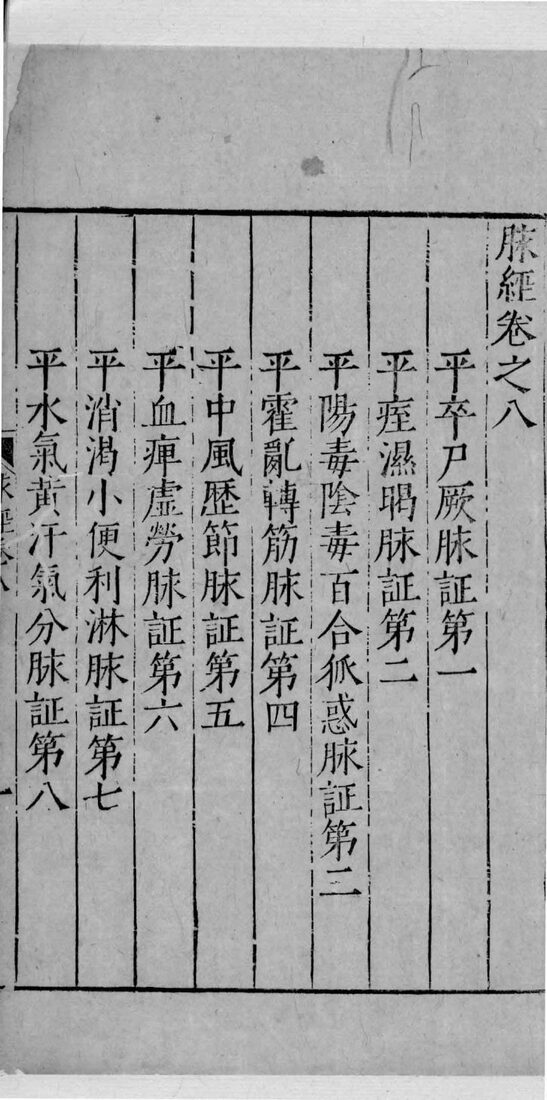 脉經卷之八
平卒尸厥脉証第一
平痓濕暍脉証第二
平陽毒陰毒百合狐惑脉証第三
平霍亂轉筋脉証第四
平中風歷節脉証第五
平血痺虛勞脉証第六
平消渴小便利淋脉証第七
平水氣黃汗氣分脉証第八